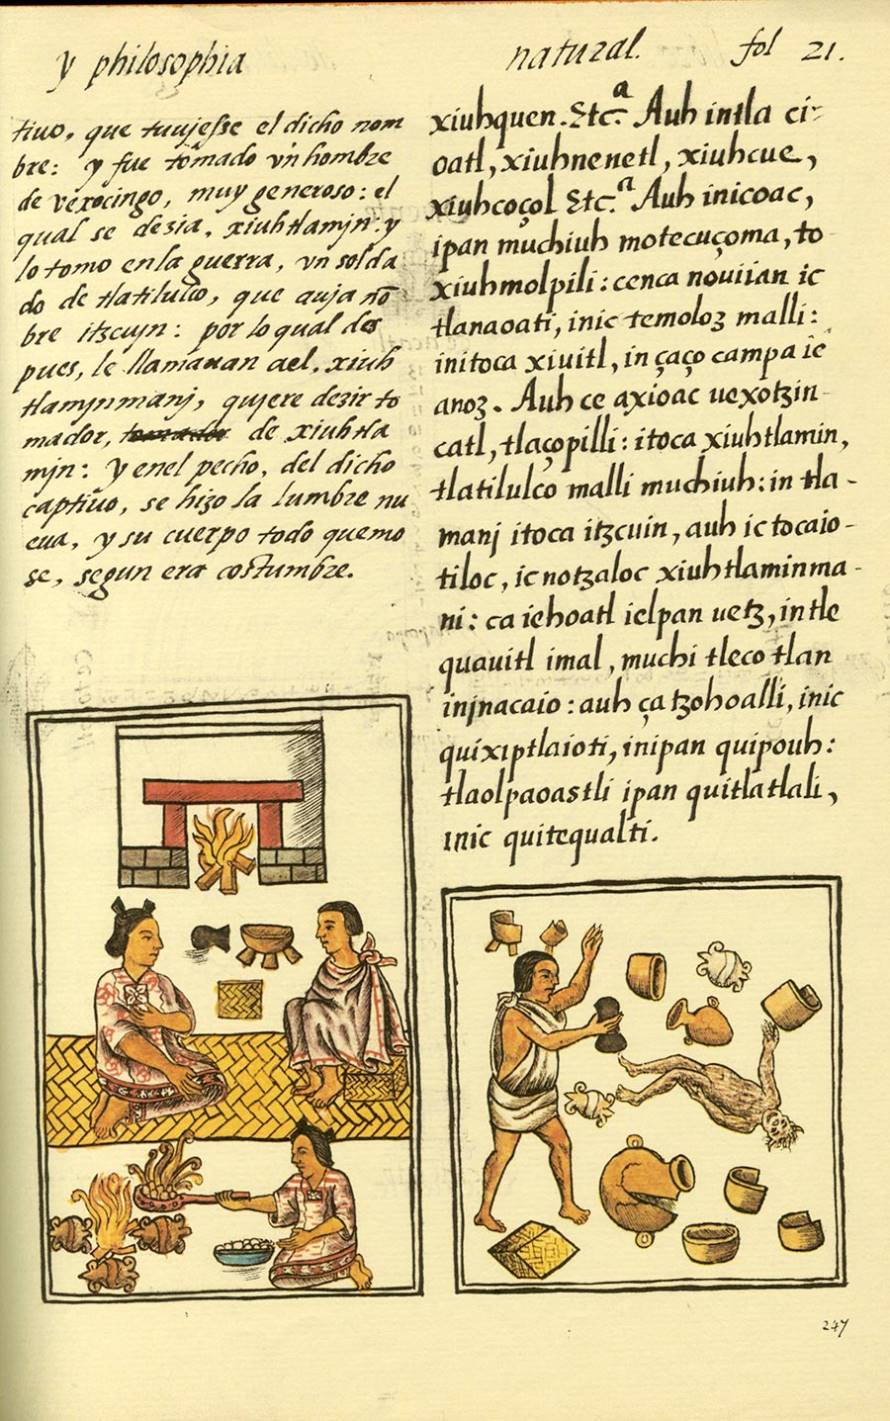 y philosophia
natural.
fol 21.
tiuo, que tuujesse el dicho nom
bre: y fue tomado vn hombre
de vexocingo, muy generoso: el
qual se desia, xiuhtlamjn: y
lo tomo en la guerra, vn solda
do de tlatilulco, que auja nō
bre itzcujn: por lo qual des
pues, le llamauan ael, xiuh
tlamjnmanj, qujere dezir to
mador, de xiuhtla
mjn: y enel pecho, del dicho
captiuo, se hizo la lumbre nu
eua, y su cuerpo todo quemo
se, segun era costumbre.
xiuhquen. Etc.ª Auh intla ci-
oatl, xiuhnenetl, xiuhcue,
xiuhcoçol Etc.ª Auh inicoac,
ipan muchiuh motecuçoma, to
xiuhmolpili: cenca nouiian ic
tlanaoati, inic temoloz malli:
initoca xiuitl, in çaço campa ic
anoz. Auh ce axioac uexotzin
catl, tlaçopilli: itoca xiuhtlamin,
tlatilulco malli muchiuh: in tla-
manj itoca itzcuin, auh ic tocaio-
tiloc, ic notzaloc xiuhtlaminma-
ni: ca iehoatl ielpan uetz, in tle
quauitl imal, muchi tleco tlan
injnacaio: auh ça tzohoalli, inic
quixiptlaioti, inipan quipouh:
tlaolpaoastli ipan quitlatlali,
inic quitequalti.
247